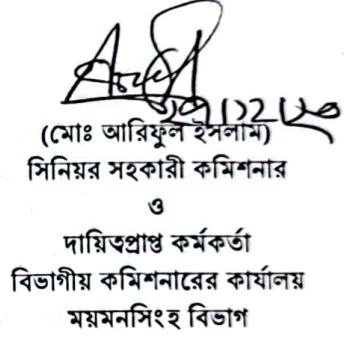 (মোঃ আরিফুল ইসলাম)
সিনিয়র সহকারী কমিশনার
ও
দায়িত্বপ্রাপ্ত কর্মকর্তা
বিভাগীয় কমিশনারের কার্যালয়
ময়মনসিংহ বিভাগ